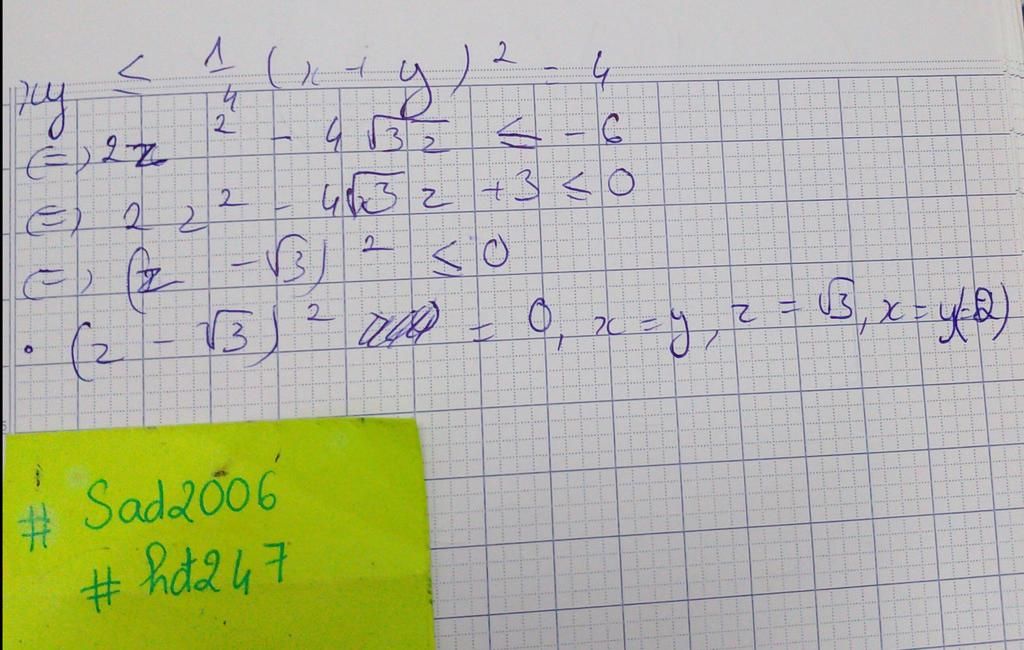 xy ≤ 1/4 (x + y)² - 4
(=) 2z² - 4√3z ≤ -6
(=) 2z² - 4√3 z + 3 ≤ 0
(=) (z - √3)² ≤ 0
• (z - √3)² = 0, x = y, z = √3, x = y(=2)
# Sad2006
# hđ247